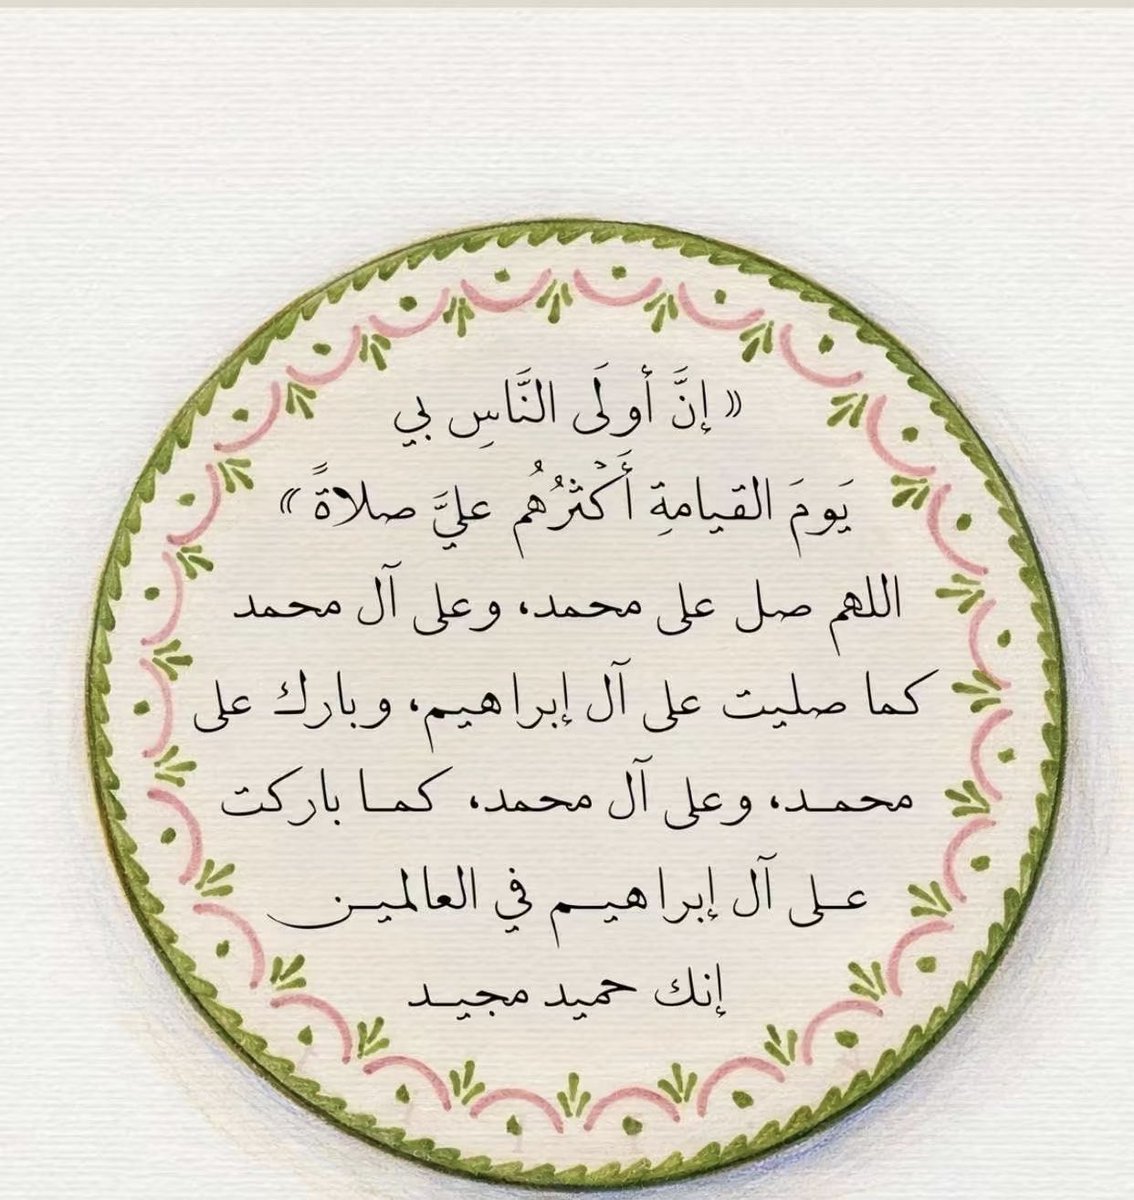 « إنَّ أولَى النَّاسِ بي
يَومَ القيامةِ أَكْثرُهُم عليَّ صلاةً »
اللهم صل على محمد، وعلى آل محمد
كما صليت على آل إبراهيم، وبارك على
محمد، وعلى آل محمد، كما باركت
على آل إبراهيم في العالمين
إنك حميد مجيد